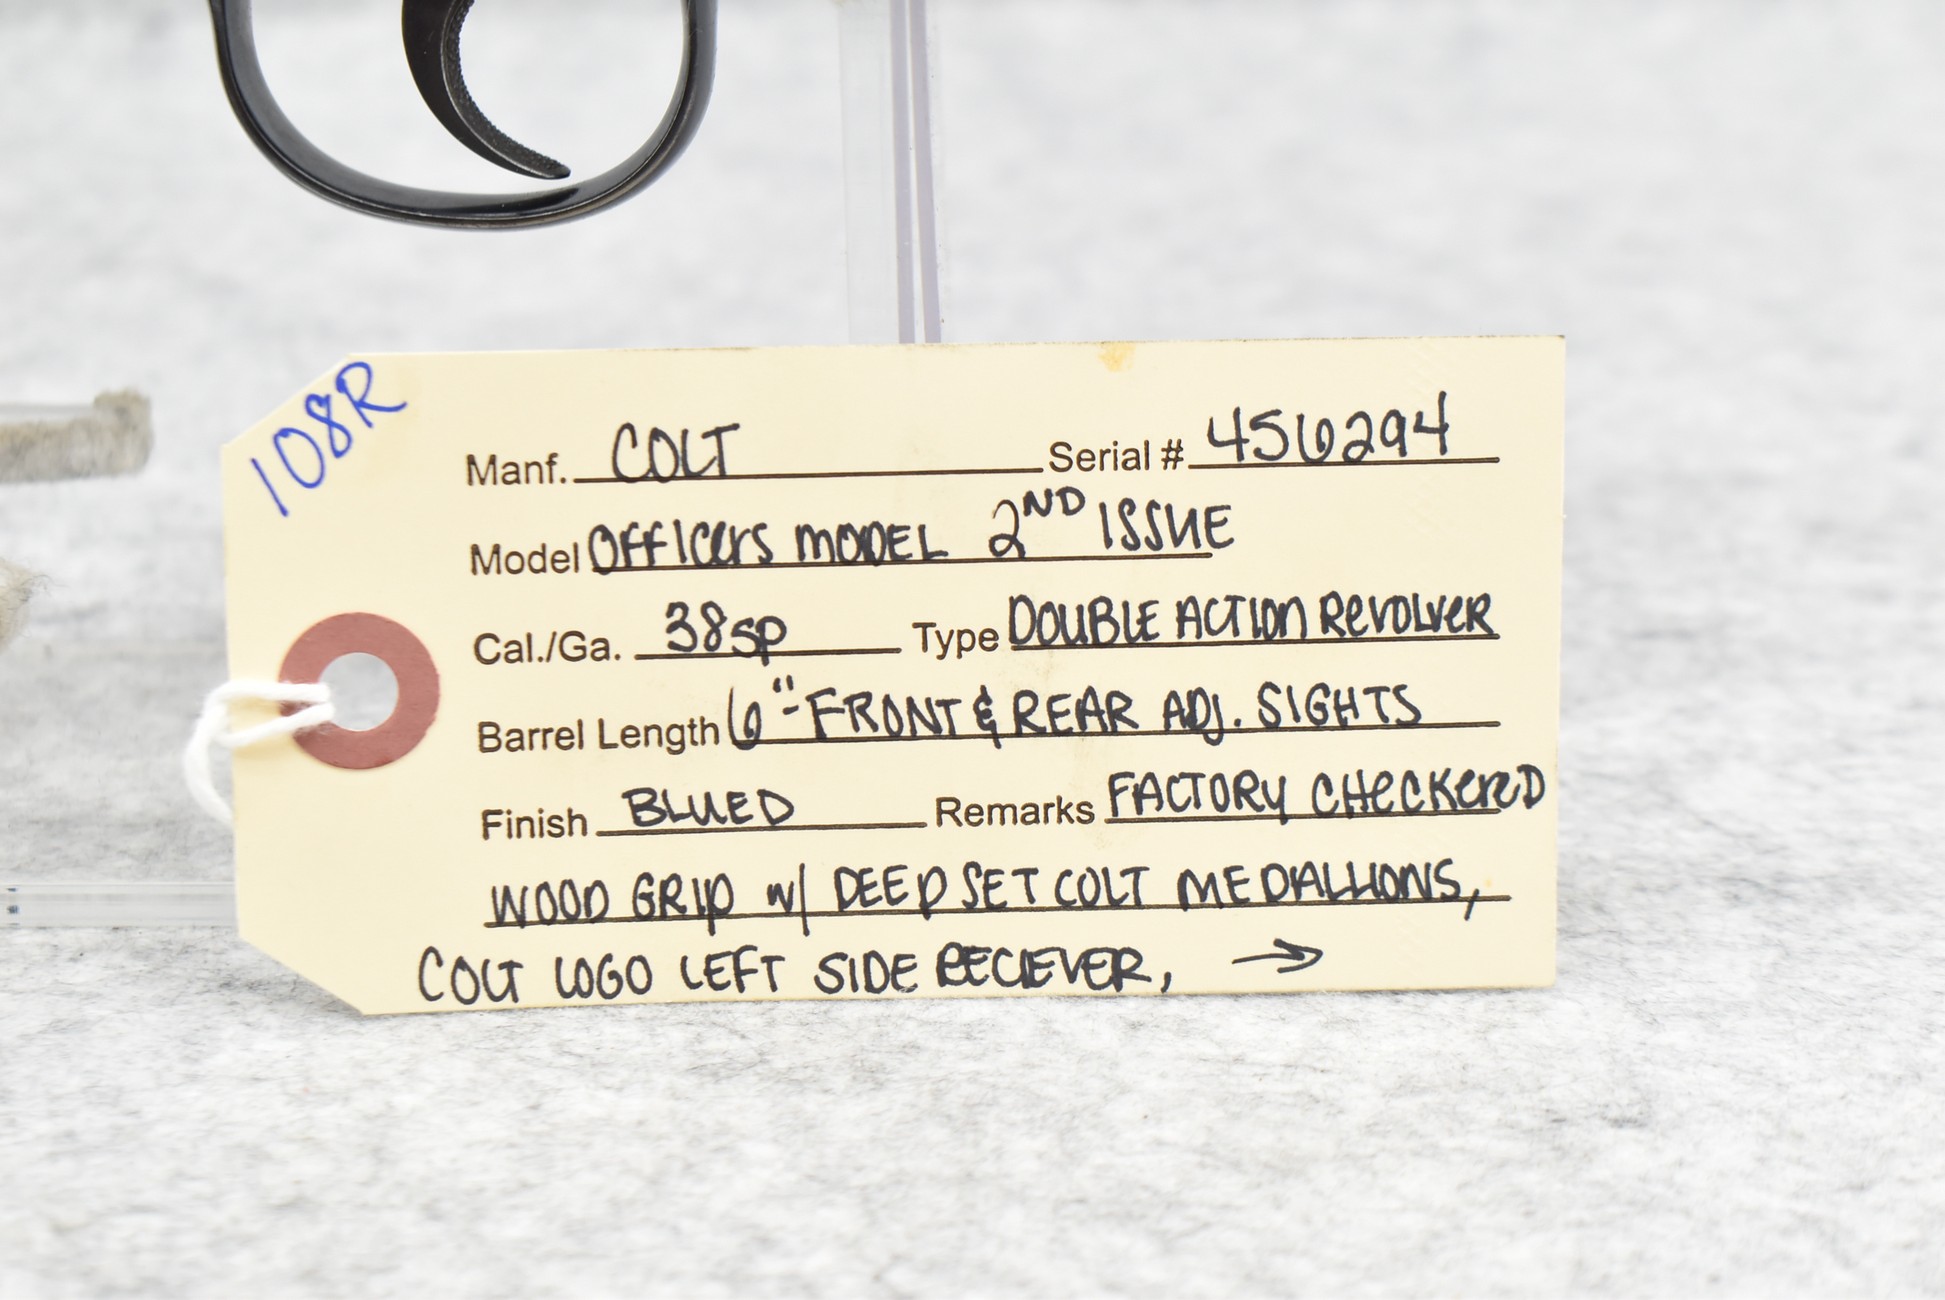 108R
Manf. COLT Serial # 456294
Model OFFICERS MODEL 2ND ISSUE
Cal./Ga. 38sp Type DOUBLE ACTION REVOLVER
Barrel Length 6"-FRONT & REAR ADJ. SIGHTS
Finish BLUED Remarks FACTORY CHECKERED
WOOD GRIP w/ DEEP SET COLT MEDALLIONS,
COLT LOGO LEFT SIDE RECIEVER, →